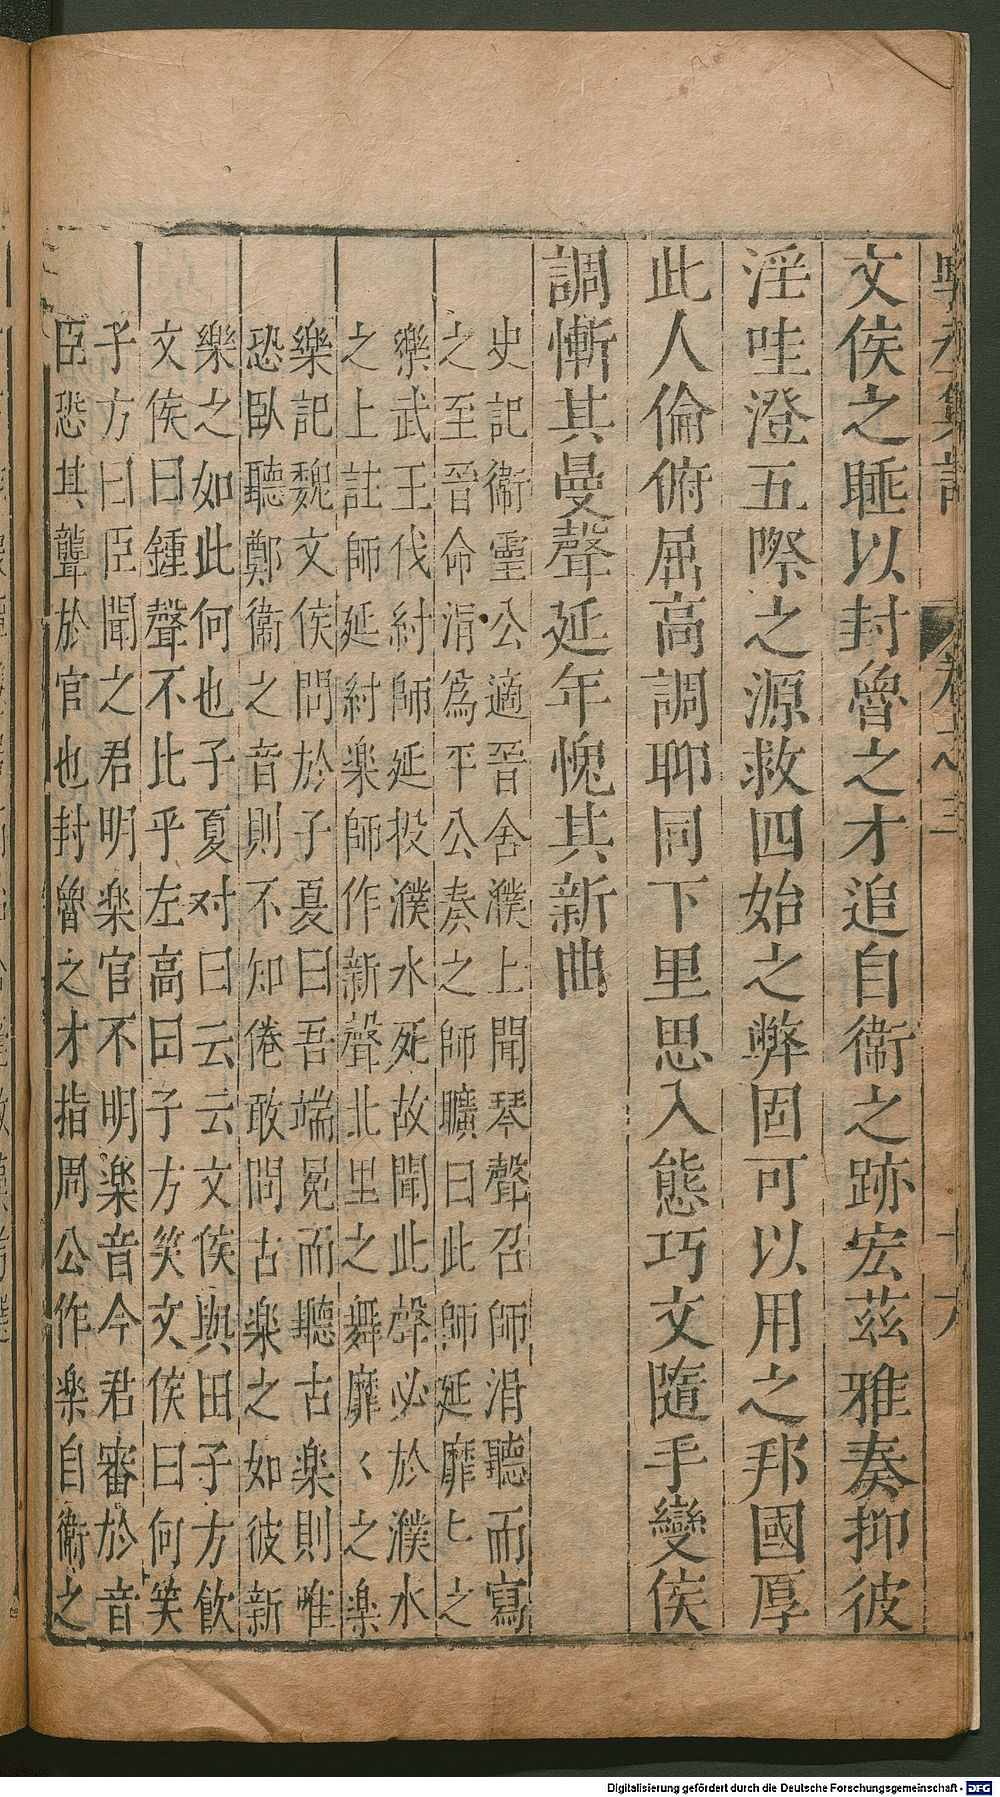 文侯之睡以封魯之才追自衞之跡宏茲雅奏抑彼
淫哇澄五際之源救四始之弊固可以用之邦國厚
此人倫俯屈高調聊同下里思入態巧文隨手變侯
調慚其曼聲延年愧其新曲
史記衞靈公適晉舍濮上聞琴聲召師涓聽而寫
之至晉命涓為平公奏之師曠曰此師延靡匕之
樂武王伐紂師延投濮水死故聞此聲必於濮水
之上註師延紂楽師作新聲北里之舞靡〻之楽
樂記魏文侯問於子夏曰吾端冕而聽古楽則唯
恐臥聽鄭衞之音則不知倦敢問古楽之如彼新
樂之如此何也子夏对曰云云文侯與田子方飲
文侯曰鍾聲不比乎左高田子方笑文侯曰何笑
子方曰臣聞之君明楽官不明楽音今君審於音
臣恐其聾於官也封魯之才指周公作楽自衞之
卷之三
十六
Digitalisierung gefördert durch die Deutsche Forschungsgemeinschaft - DFG